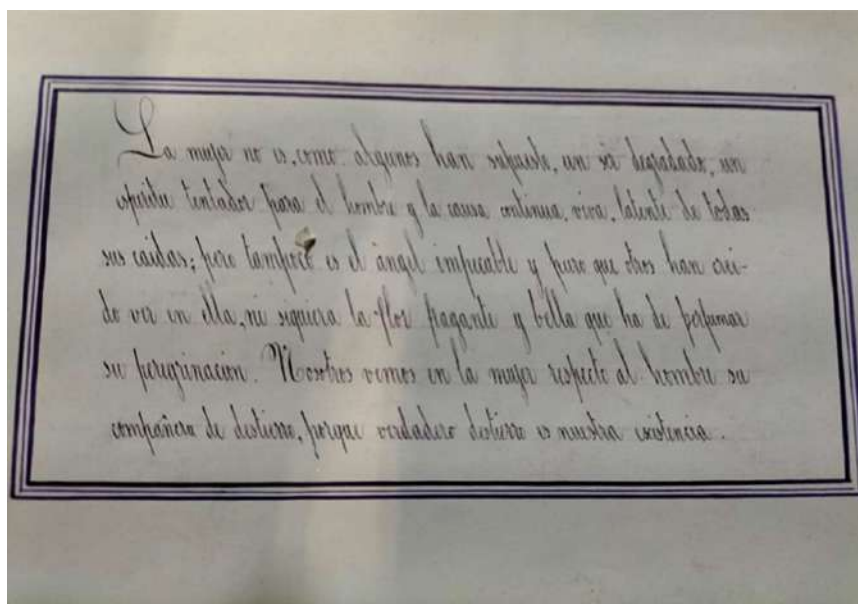 La mujer no es, como algunos han supuesto, un sér degradado, un
espíritu tentador para el hombre y la causa continua, viva, latente de todas
sus caidas; pero tampoco es el ángel impecable y puro que otros han crei-
do ver en ella, ni siquiera la flor fragante y bella que ha de perfumar
su peregrinación. Nosotros vemos en la mujer respecto al hombre su
compañera de destierro, porque verdadero destierro es nuestra existencia.